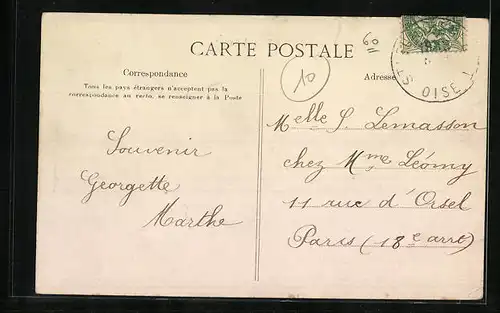 CARTE POSTALE
Correspondance
Tous les pays étrangers n'acceptent pas la
correspondance au recto, se renseigner à la Poste
Adresse
10
OISE
Souvenir
Georgette
Marthe
Melle S. Lemasson
chez Mme Léomy
11 rue d'Orsel
Paris (18e arrt)